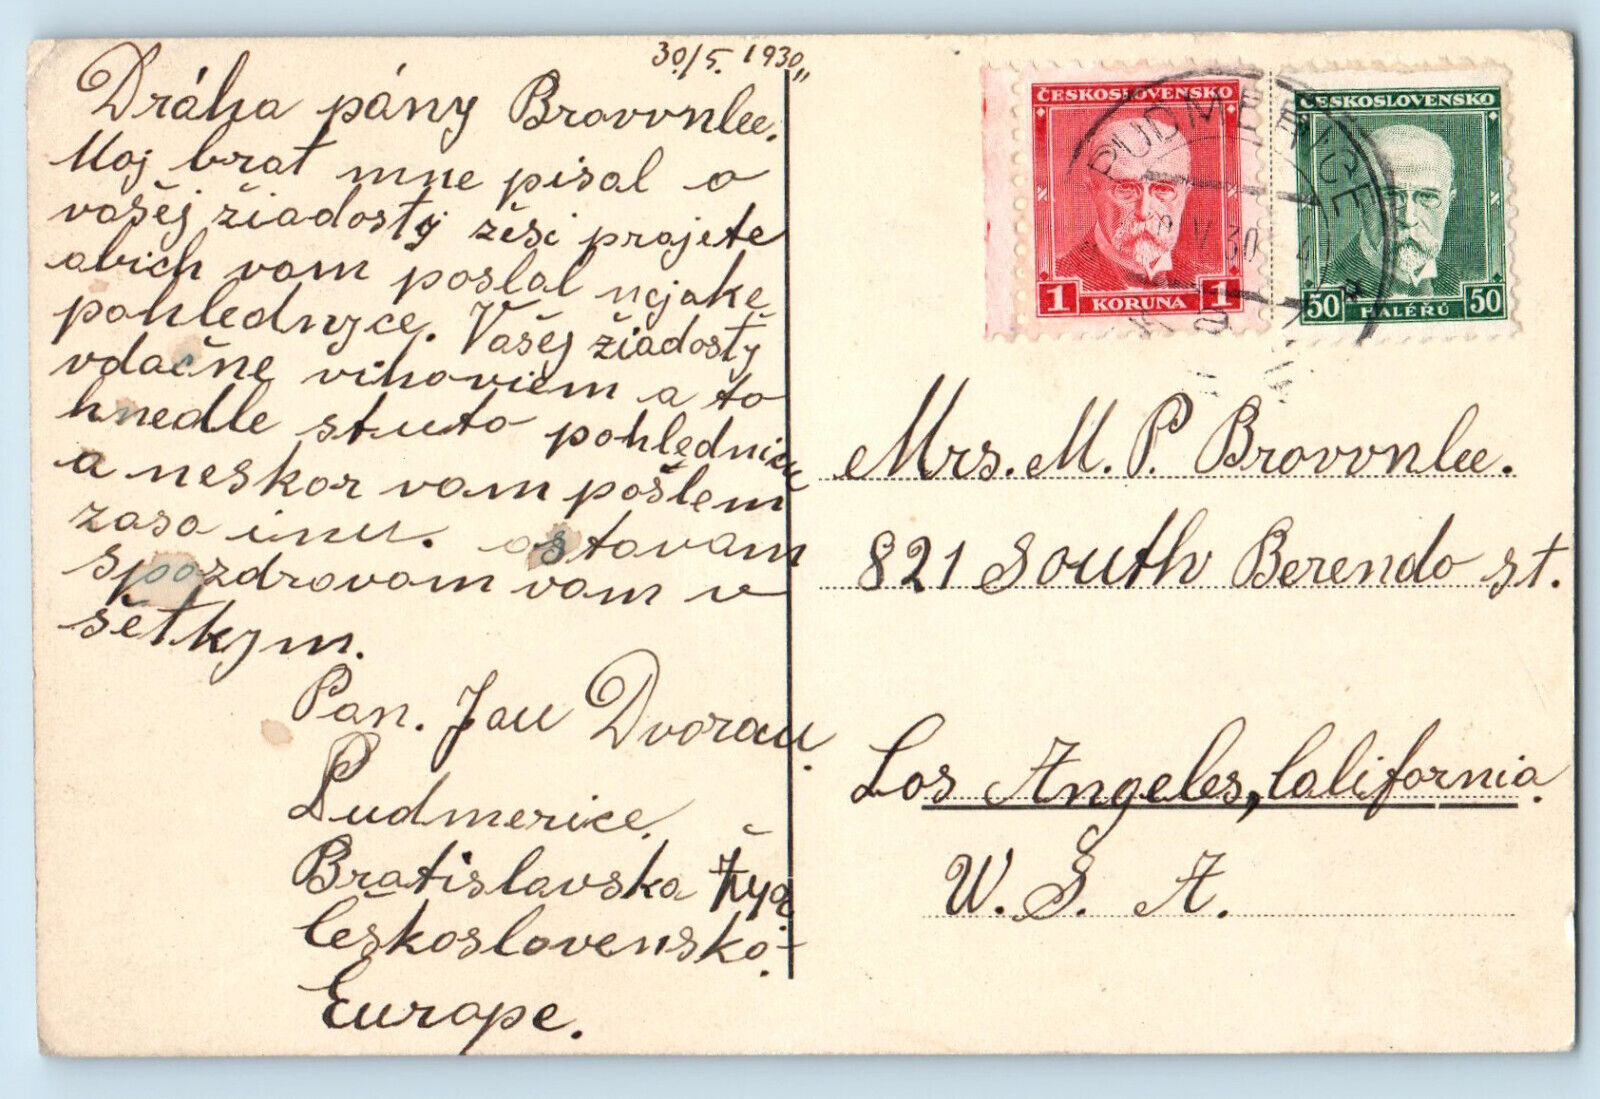 30./5. 1930,,
Dráha pány Brovvnlee.
Moj brat mne pisal o
vašej žiadosty žesi prajete
abich vam poslal nejake
pohlednyce. Vašej žiadosty
vdačne vihoviem a to
hnedle stuto pohlednicu
a neskor vam pošlem
zaso inu. ostavam
spozdravam vam v
šetkym.
Pan. Jan Dvoran.
Pudmerice.
Bratislavska Župa
Československo-
Europe.
ČESKOSLOVENSKO
1 KORUNA 1
ČESKOSLOVENSKO
50 HALÉŘŮ 50
PUDMERICE
V 30
Mrs. M. P. Brovvnlee.
821 South Berendo st.
Los Angeles, California.
U. S. A.